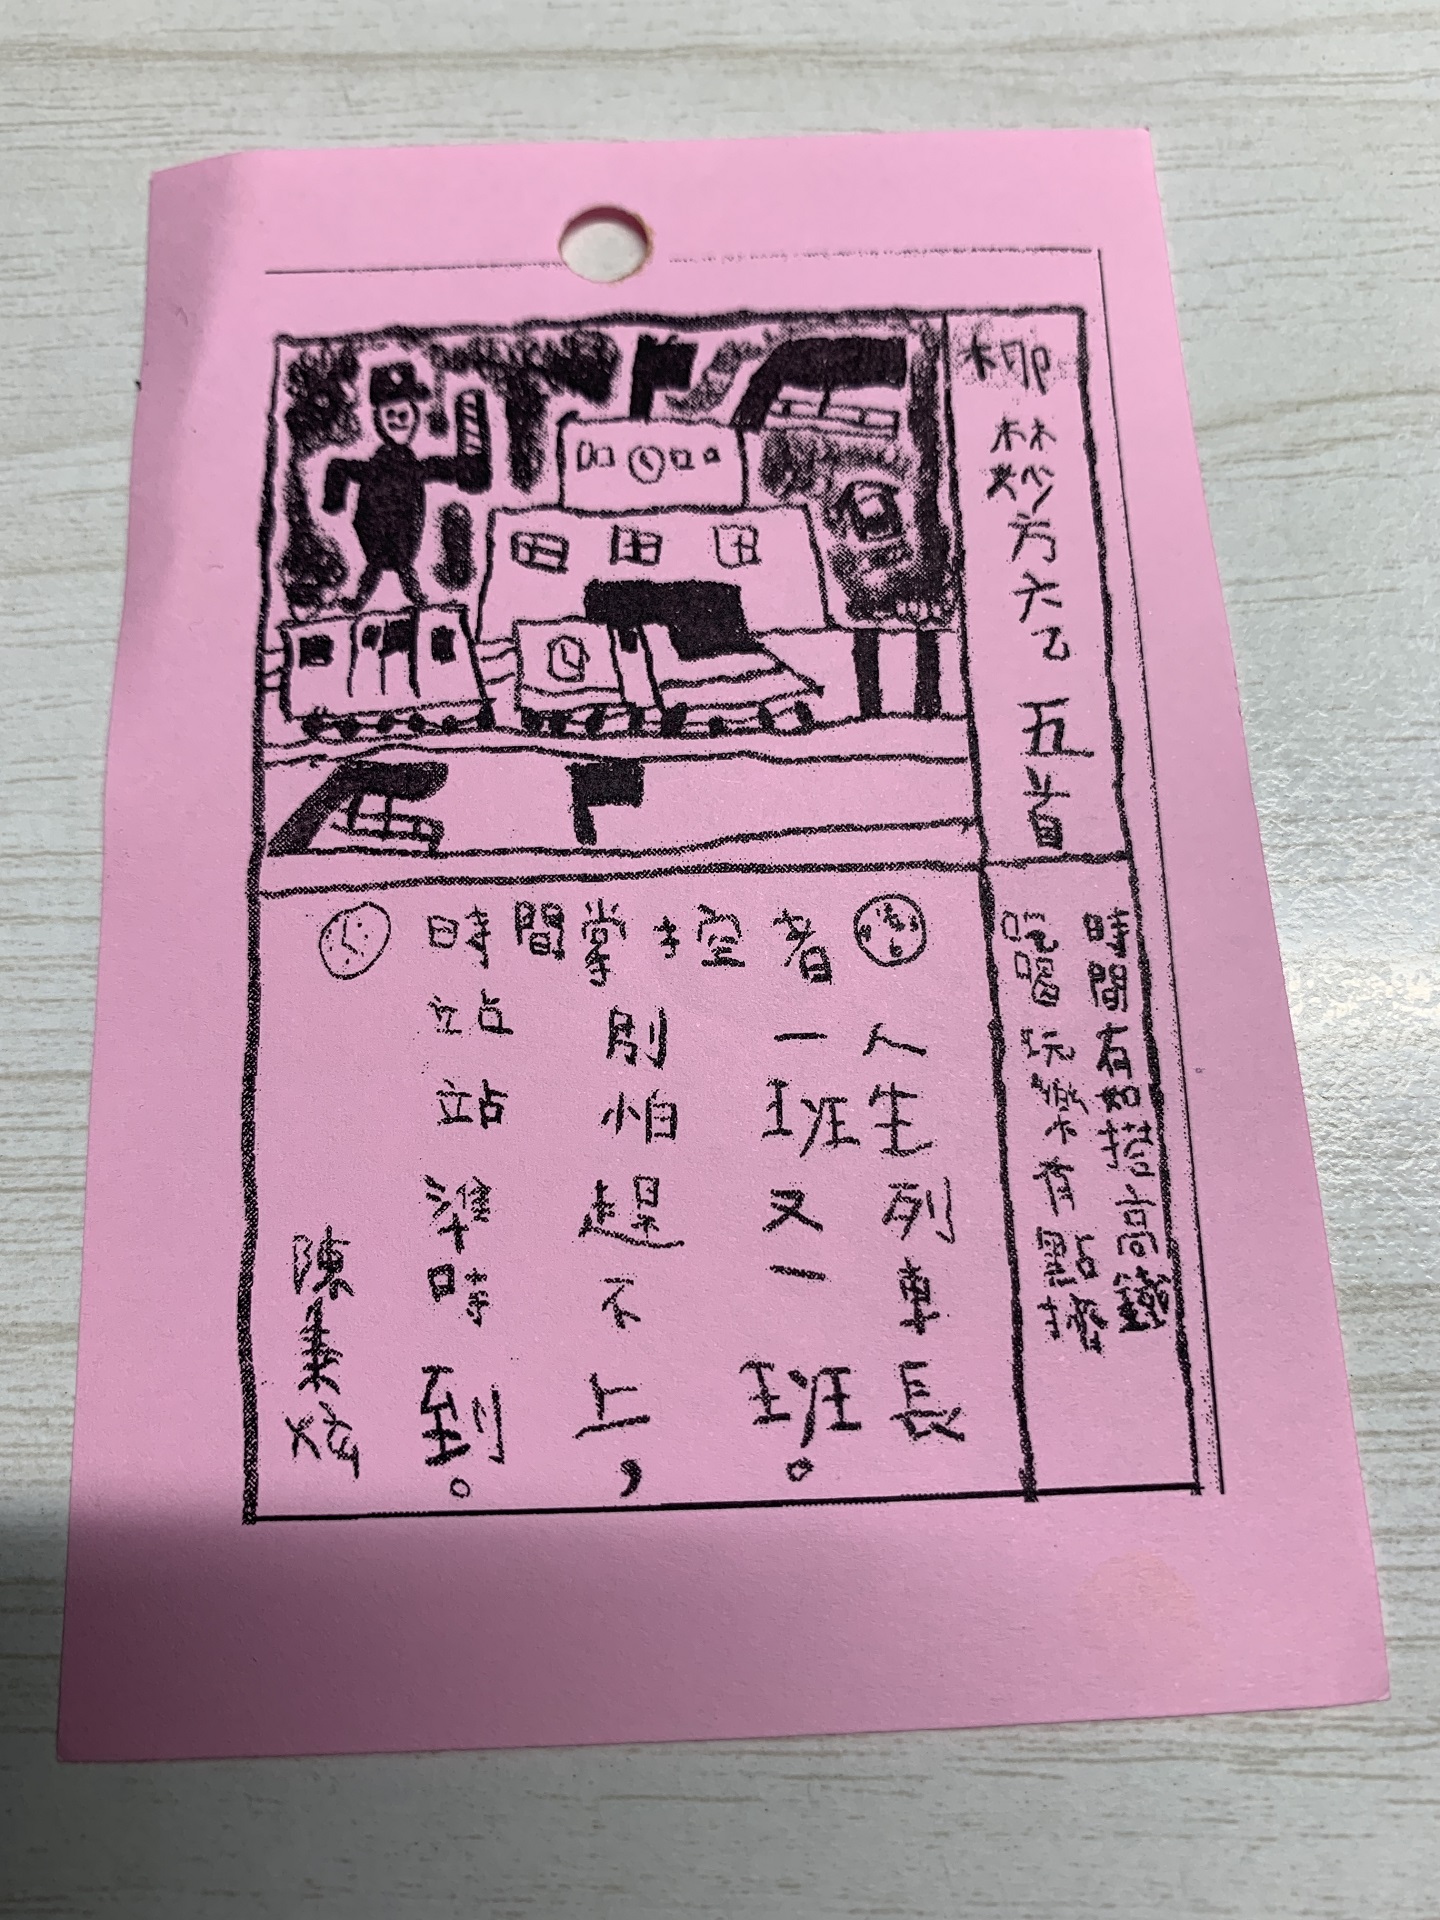 柳林方六乙 五首
時間有如搭高鐵
吃喝玩樂有點站
時間掌控者
人生列車長
一班又一班。
別怕趕不上，
站站準時到。
陳